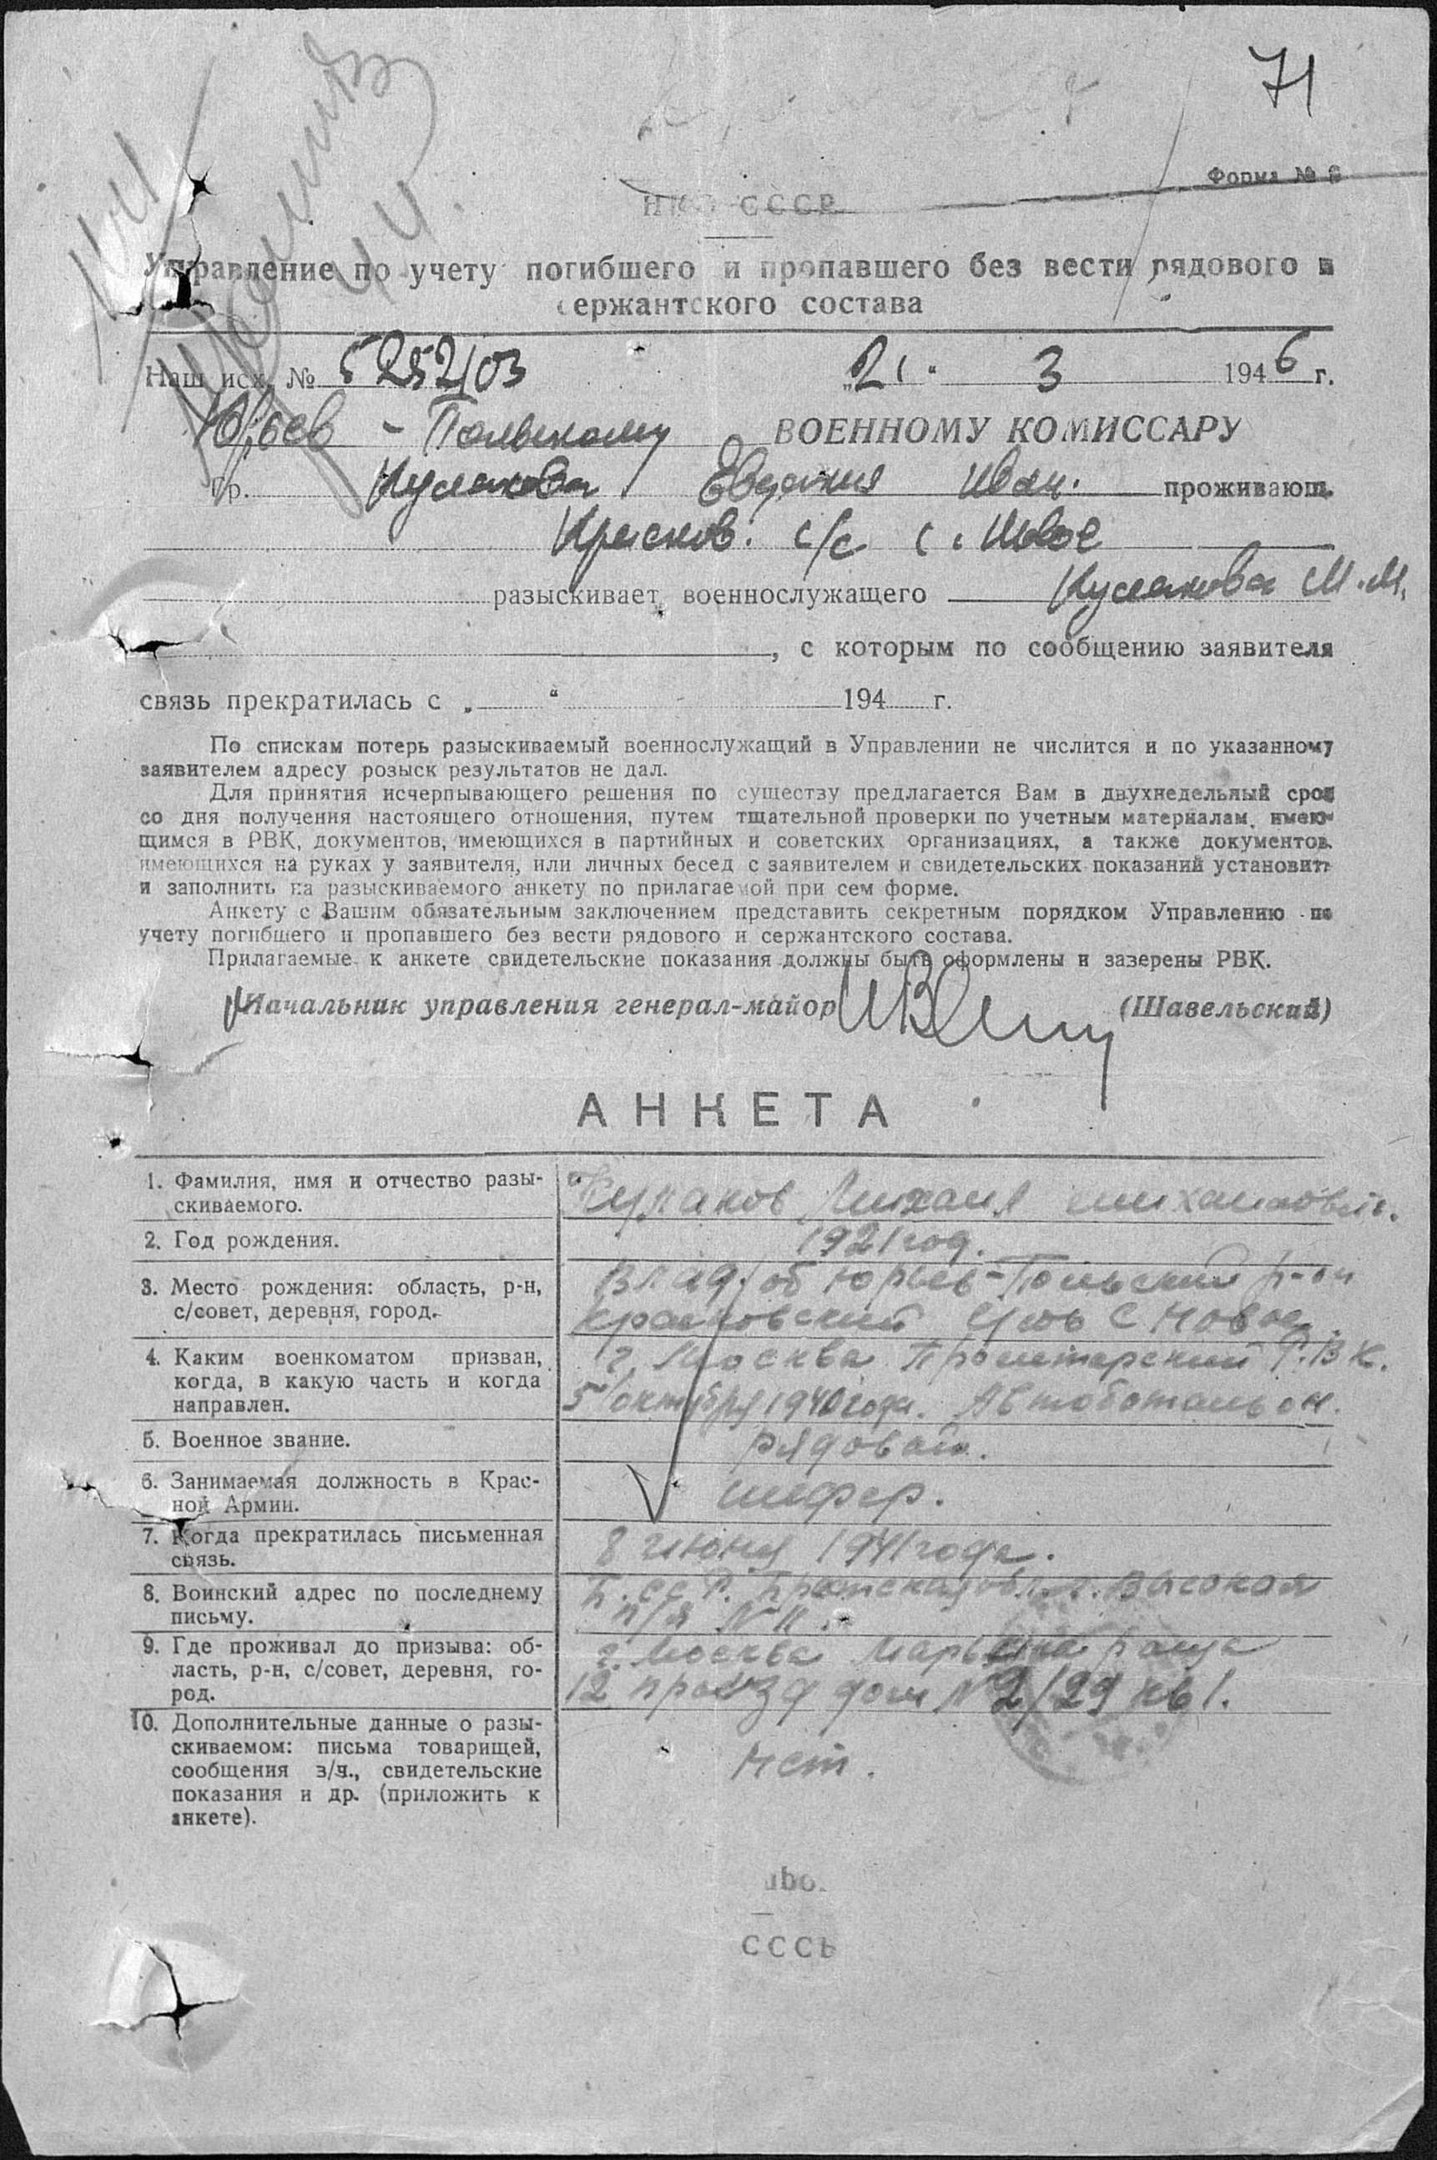 71
Форма № 6
НКО СССР
Управление по учету погибшего и пропавшего без вести рядового и
сержантского состава
Наш исх. № 5252/03 „21" 3 1946 г.
Юрьев - Польскому ВОЕННОМУ КОМИССАРУ
Гр. Кулакова Евдокия Иван. проживающ.
Красков. с/с с. Новое
разыскивает военнослужащего Кулакова М.М.
, с которым по сообщению заявителя
связь прекратилась с „ " 194 г.
По спискам потерь разыскиваемый военнослужащий в Управлении не числится и по указанному
заявителем адресу розыск результатов не дал.
Для принятия исчерпывающего решения по существу предлагается Вам в двухнедельный срок
со дня получения настоящего отношения, путем тщательной проверки по учетным материалам, имею-
щимся в РВК, документов, имеющихся в партийных и советских организациях, а также документов,
имеющихся на руках у заявителя, или личных бесед с заявителем и свидетельских показаний установить
и заполнить на разыскиваемого анкету по прилагаемой при сем форме.
Анкету с Вашим обязательным заключением представить секретным порядком Управлению по
учету погибшего и пропавшего без вести рядового и сержантского состава.
Прилагаемые к анкете свидетельские показания должны быть оформлены и заверены РВК.
Начальник управления генерал-майор (Шавельский)
АНКЕТА
1. Фамилия, имя и отчество разы-
скиваемого.
Кулаков Михаил Михайлович.
2. Год рождения.
1921 год.
3. Место рождения: область, р-н,
с/совет, деревня, город.
Влад. об Юрьев-Польский р-он
Красковский С Новое
4. Каким военкоматом призван,
когда, в какую часть и когда
направлен.
г. Москва Пролетарский Р.В.К.
5 октября 1940 года. Автобатальон.
5. Военное звание.
рядовой.
6. Занимаемая должность в Крас-
ной Армии.
шофер.
7. Когда прекратилась письменная
связь.
8 июня 1941 года.
8. Воинский адрес по последнему
письму.
Б.ССР. г. Высокая
п/я N 11.
9. Где проживал до призыва: об-
ласть, р-н, с/совет, деревня, го-
род.
г. Москва Марьина роща
12 проезд дом N 2/29 кв 1.
10. Дополнительные данные о разы-
скиваемом: письма товарищей,
сообщения з/ч., свидетельские
показания и др. (приложить к
анкете).
нет.
СССР